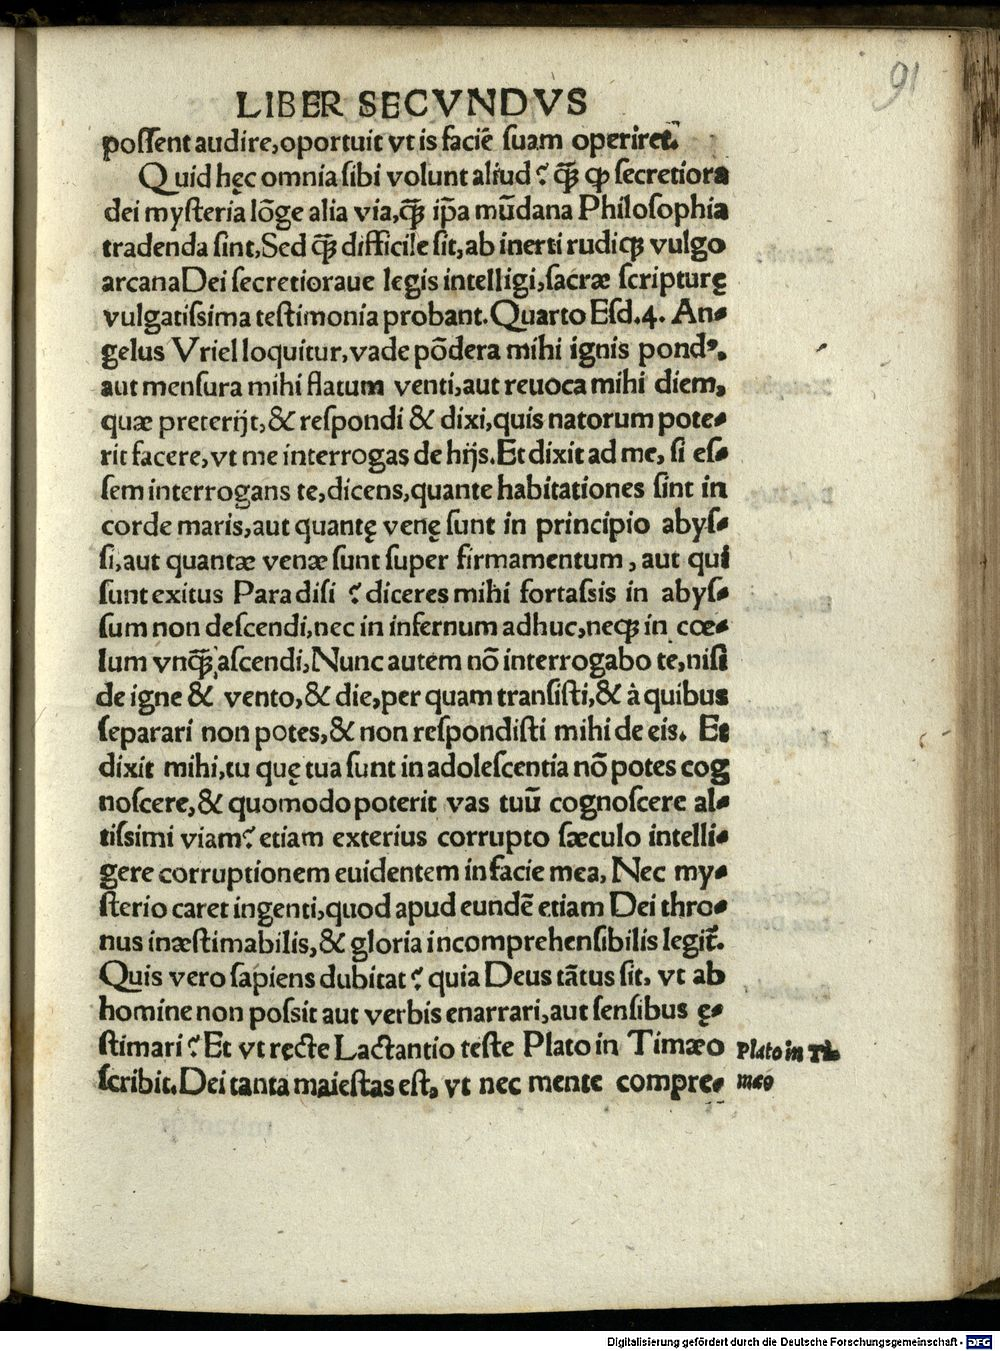 91
LIBER SECVNDVS
poſſent audire,oportuit vt is faciē ſuam operiret.
Quid hęc omnia ſibi volunt aliud? qꝫ̄ ꝙ ſecretiora
dei myſteria lōge alia via,qꝫ̄ ip̄a mūdana Philoſophia
tradenda ſint,Sed qꝫ̄ difficile ſit,ab inerti rudiqꝫ vulgo
arcana Dei ſecretioraue legis intelligi,ſacræ ſcripturę
vulgatiſsima teſtimonia probant.Quarto Eſd.4. An⸗
gelus Vriel loquitur,vade pōdera mihi ignis pondꝰ.
aut menſura mihi flatum venti,aut reuoca mihi diem,
quæ preterijt,& reſpondi & dixi,quis natorum pote⸗
rit facere,vt me interrogas de hijs.Et dixit ad me, ſi eſ⸗
ſem interrogans te,dicens,quante habitationes ſint in
corde maris,aut quantę venę ſunt in principio abyſ⸗
ſi,aut quantæ venæ ſunt ſuper firmamentum, aut qui
ſunt exitus Paradiſi ? diceres mihi fortaſsis in abyſ⸗
ſum non deſcendi,nec in infernum adhuc,neqꝫ in cœ⸗
lum vnqꝫ̄ aſcendi,Nunc autem nō interrogabo te,niſi
de igne & vento,& die,per quam tranſiſti,& à quibus
ſeparari non potes,& non reſpondiſti mihi de eis. Et
dixit mihi,tu quę tua ſunt in adoleſcentia nō potes cog
noſcere,& quomodo poterit vas tuū cognoſcere al⸗
tiſsimi viam? etiam exterius corrupto ſæculo intelli⸗
gere corruptionem euidentem in facie mea, Nec my⸗
ſterio caret ingenti,quod apud eundē etiam Dei thro⸗
nus inæſtimabilis,& gloria incomprehenſibilis legit᷑.
Quis vero ſapiens dubitat? quia Deus tātus ſit, vt ab
homine non poſsit aut verbis enarrari,aut ſenſibus ę⸗
ſtimari? Et vt ręcte Lactantio teſte Plato in Timæo
ſcribit.Dei tanta maieſtas eſt, vt nec mente compre⸗
Plato in Ti⸗
meo
Digitalisierung gefördert durch die Deutsche Forschungsgemeinschaft - DFG